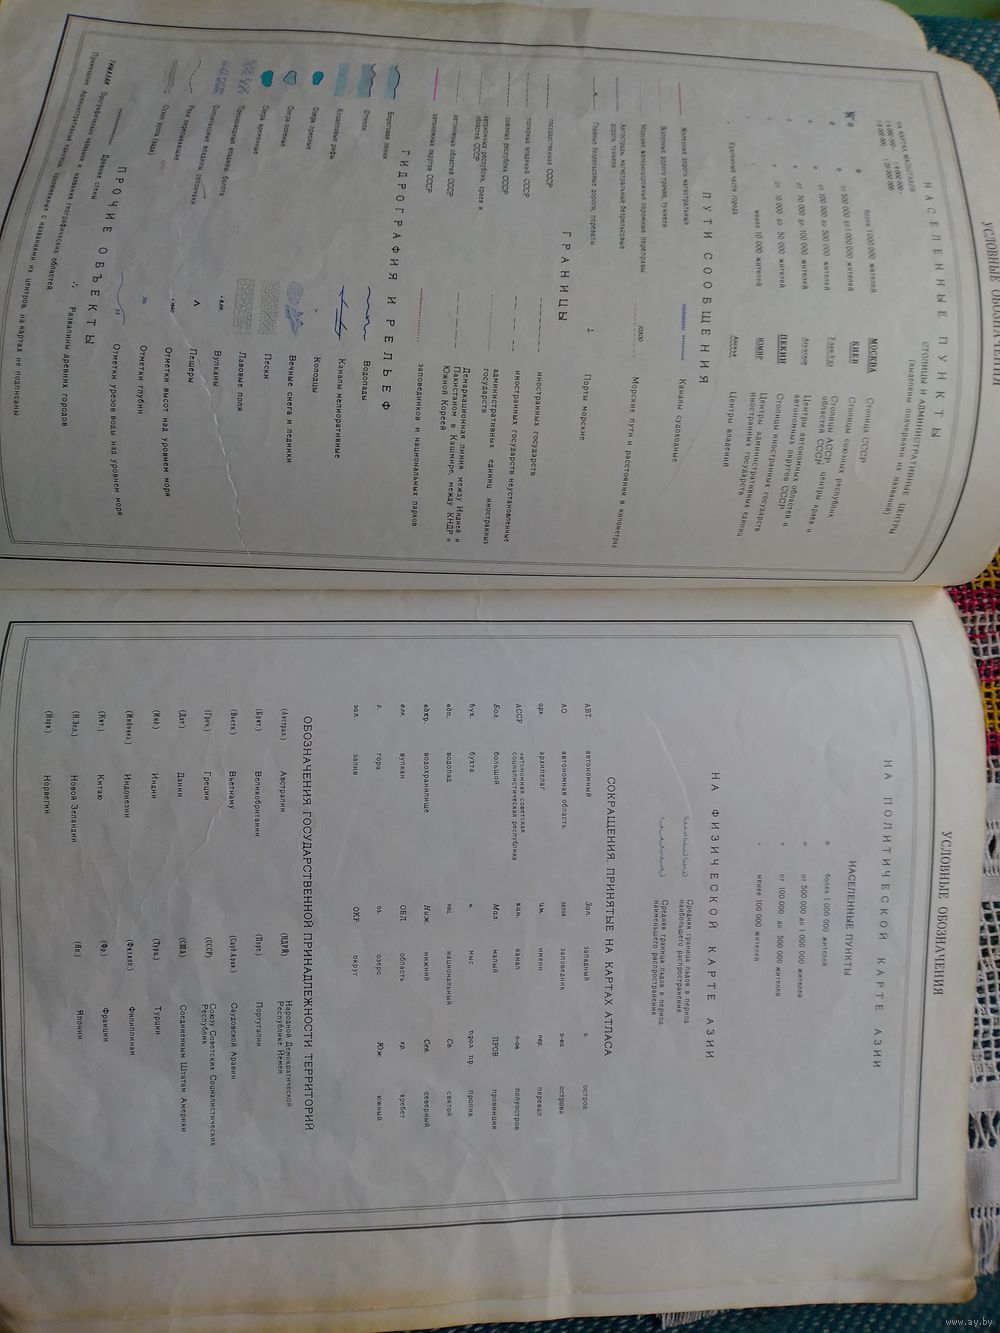 УСЛОВНЫЕ ОБОЗНАЧЕНИЯ
НАСЕЛЕННЫЕ ПУНКТЫ
НА КАРТАХ МАСШТАБОВ
более 1 000 000 жителей
от 500 000 до 1 000 000 жителей
от 100 000 до 500 000 жителей
от 50 000 до 100 000 жителей
от 10 000 до 50 000 жителей
менее 10 000 жителей
Удаленные части города
СТОЛИЦЫ И АДМИНИСТРАТИВНЫЕ ЦЕНТРЫ
(выделены подчерками их названий)
МОСКВА Столица СССР
КИЕВ Столицы союзных республик
Столицы АССР, центры краев и
областей СССР
Центры автономных областей и
автономных округов СССР
ПЕКИН Столицы иностранных государств
ИЗМИР Центры административных единиц
иностранных государств
Центры владений
ПУТИ СООБЩЕНИЯ
Железные дороги магистральные
Железные дороги прочие, туннели
Морские железнодорожные паромные переправы
Автострады, магистральные безрельсовые
дороги, туннели
Главные безрельсовые дороги, перевалы
Каналы судоходные
Морские пути и расстояния в километрах
Порты морские
ГРАНИЦЫ
государственная СССР
полярных владений СССР
союзных республик СССР
автономных республик, краев и
областей СССР
автономных областей СССР
автономных округов СССР
иностранных государств
иностранных государств неустановленные
административных единиц иностранных
государств
Демаркационная линия между Индией и
Пакистаном в Кашмире, между КНДР и
Южной Кореей
заповедников и национальных парков
ГИДРОГРАФИЯ И РЕЛЬЕФ
Береговая линия
Отмели
Коралловые рифы
Озера пресные
Озера соленые
Озера временные
Пересыхающие
Солончаковые впадины, болота
Реки пересыхающие, исторические
Сухие русла (вади)
Водопады
Каналы мелиоративные
Колодцы
Вечные снега и ледники
Пески
Лавовые поля
Вулканы
Пещеры
Отметки высот над уровнем моря
Отметки глубин
Отметки урезов воды над уровнем моря
ПРОЧИЕ ОБЪЕКТЫ
Древние стены
ГИМАЛАИ Орографические названия и названия географических областей
Развалины древних городов
Примечание. Административные единицы, одноименные с названиями их центров, на картах не подписаны.
УСЛОВНЫЕ ОБОЗНАЧЕНИЯ
НА ПОЛИТИЧЕСКОЙ КАРТЕ АЗИИ
НАСЕЛЕННЫЕ ПУНКТЫ
более 1 000 000 жителей
от 500 000 до 1 000 000 жителей
от 100 000 до 500 000 жителей
менее 100 000 жителей
НА ФИЗИЧЕСКОЙ КАРТЕ АЗИИ
Средняя граница льдов в период
наибольшего распространения
Средняя граница льдов в период
наименьшего распространения
СОКРАЩЕНИЯ, ПРИНЯТЫЕ НА КАРТАХ АТЛАСА
АВТ. автономный Зап. западный о. остров
АО автономная область запов заповедник о-ва острова
арх. архипелаг им. имени пер. перевал
АССР автономная советская
социалистическая республика кан. канал п-ов полуостров
Бол. большой Мал. малый ПРОВ провинция
бух. бухта м. мыс прол. пр. пролив
вдп. водопад нац национальный Св. святой
вдхр. водохранилище Ниж нижний Сев. северный
влк. вулкан ОБЛ область хр. хребет
г. гора оз. озеро Юж. южный
зал. залив ОКР округ
ОБОЗНАЧЕНИЯ ГОСУДАРСТВЕННОЙ ПРИНАДЛЕЖНОСТИ ТЕРРИТОРИЙ
(Австрал.) Австралии (НДРЙ) Народной Демократической
Республике Йемен
(Брит.) Великобритании (Порт.) Португалии
(Вьетн.) Вьетнаму (Сауд.Арав.) Саудовской Аравии
(Греч.) Греции (СССР) Союзу Советских Социалистических
Республик
(Дат.) Дании (США) Соединенным Штатам Америки
(Инд.) Индии (Турц.) Турции
(Индонез.) Индонезии (Филип.) Филиппинам
(Кит.) Китаю (Фр.) Франции
(Н.Зел.) Новой Зеландии (Яп.) Японии
(Норв.) Норвегии
www.ay.by